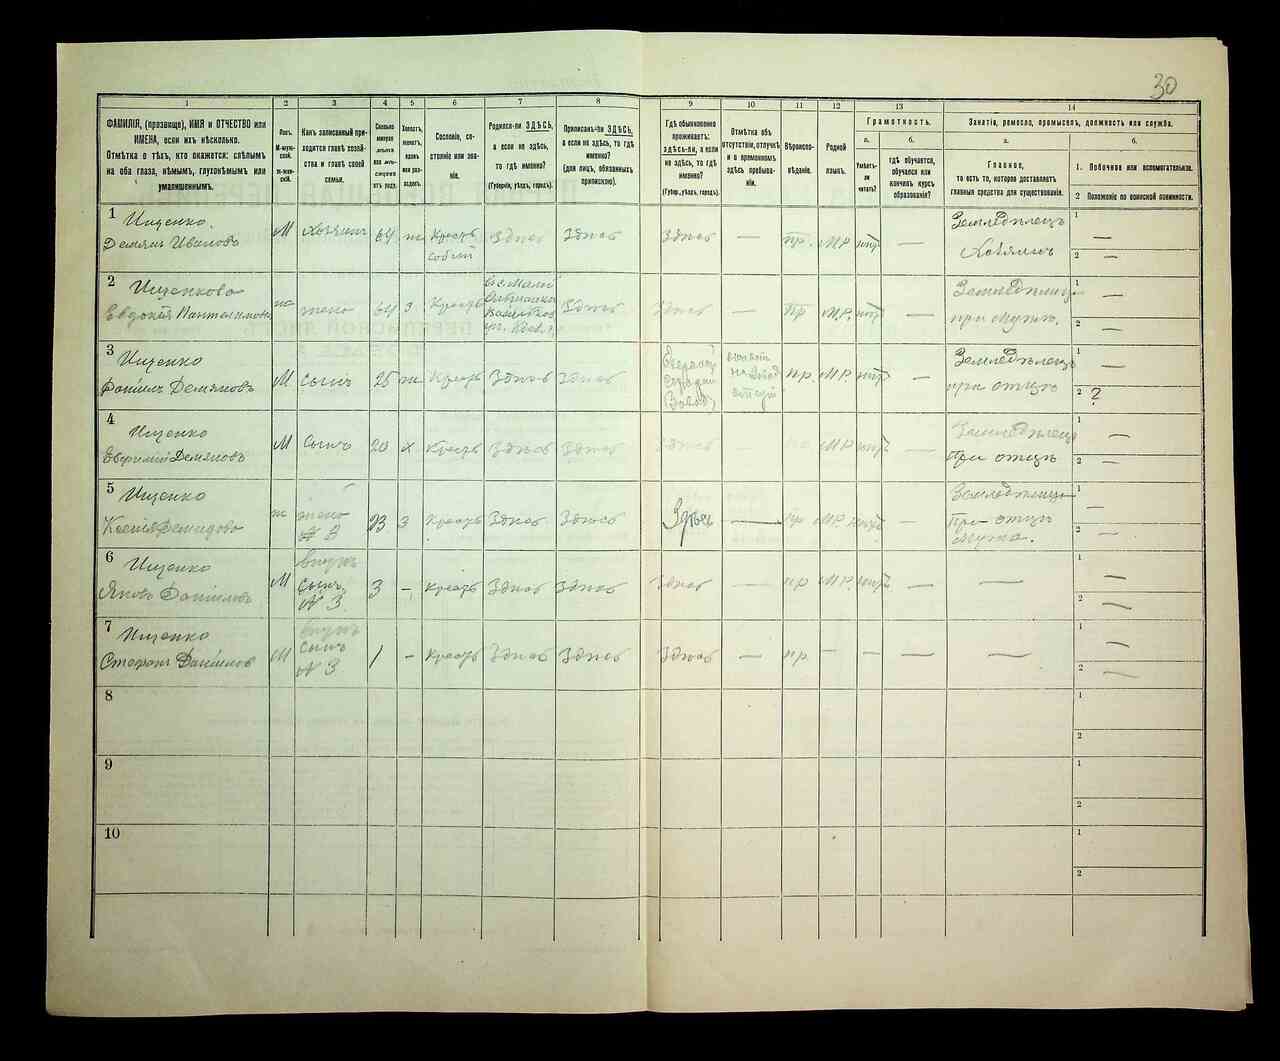 30
1
2
3
4
5
6
7
8
9
10
11
12
13
14
ФАМИЛІЯ, (прозвище), ИМЯ и ОТЧЕСТВО или
ИМЕНА, если ихъ нѣсколько.
Отмѣтка о тѣхъ, кто окажется: слѣпымъ
на оба глаза, нѣмымъ, глухонѣмымъ или
умалишеннымъ.
Полъ.
М-муж-
ской.
Ж-жен-
скій.
Какъ записанный при-
ходится главѣ хозяй-
ства и главѣ своей
семьи.
Сколько
минуло
лѣтъ
или мѣ-
сяцевъ
отъ роду.
Холостъ,
женатъ,
вдовъ
или раз-
веденъ.
Сословіе, со-
стояніе или зва-
ніе.
Родился-ли ЗДѢСЬ,
а если не здѣсь,
то гдѣ именно?
(Губернія, уѣздъ, городъ).
Приписанъ-ли ЗДѢСЬ,
а если не здѣсь, то гдѣ
именно?
(для лицъ, обязанныхъ
припискою).
Гдѣ обыкновенно
проживаетъ:
здѣсь-ли, а если
не здѣсь, то гдѣ
именно?
(Губер., уѣздъ, городъ).
Отмѣтка объ
отсутствіи, отлучкѣ
и о временномъ
здѣсь пребыва-
ніи.
Вѣроиспо-
вѣданіе.
Родной
языкъ.
Грамотность.
а.
Умѣетъ-
ли
читать?
б.
гдѣ обучается,
обучался или
кончилъ курсъ
образованія?
Занятіе, ремесло, промыселъ, должность или служба.
а.
Главное,
то есть то, которое доставляетъ
главныя средства для существованія.
б.
1. Побочное или вспомогательное.
2 Положеніе по воинской повинности.
1 Ищенко
Демянъ Ивановъ
М Хозяинъ 64 ж Крестъ Здѣсь Здѣсь Здѣсь — пр. М.Р. нѣтъ — Земледѣлецъ 1 —
Хозяинъ 2 —
2 Ищенкова
Евдокія Пантелимонова
ж жена 64 З Крестъ Здѣсь Здѣсь — Пр М.Р. нѣтъ — 1 —
при мужѣ. 2 —
3 Ищенко
Даніилъ Демяновъ
М Сынъ 25 ж Крестъ Здѣсь Здѣсь пр. М.Р. нѣтъ — Земледѣлецъ 1 —
при отцѣ 2 ?
4 Ищенко
Евфимій Демяновъ
М Сынъ 20 х Крестъ Здѣсь Здѣсь Здѣсь — М.Р. нѣтъ — Земледѣлецъ 1 —
При отцѣ 2 —
5 Ищенко
Ксенія Демидова
ж жена
№ 3
23 З Крестъ Здѣсь Здѣсь Здѣсь — Пр М.Р. нѣтъ — 1 —
При отцѣ
мужа. 2 —
6 Ищенко
Яковъ Даніиловъ
М внукъ
Сынъ
№ 3
3 — Крестъ Здѣсь Здѣсь Здѣсь — пр М.Р. нѣтъ — — 1 —
2 —
7 Ищенко
Стефанъ Даніиловъ
М внукъ
Сынъ
№ 3
1 — Крестъ Здѣсь Здѣсь Здѣсь — пр. — — — — 1 —
2 —
8 1
2
9 1
2
10 1
2